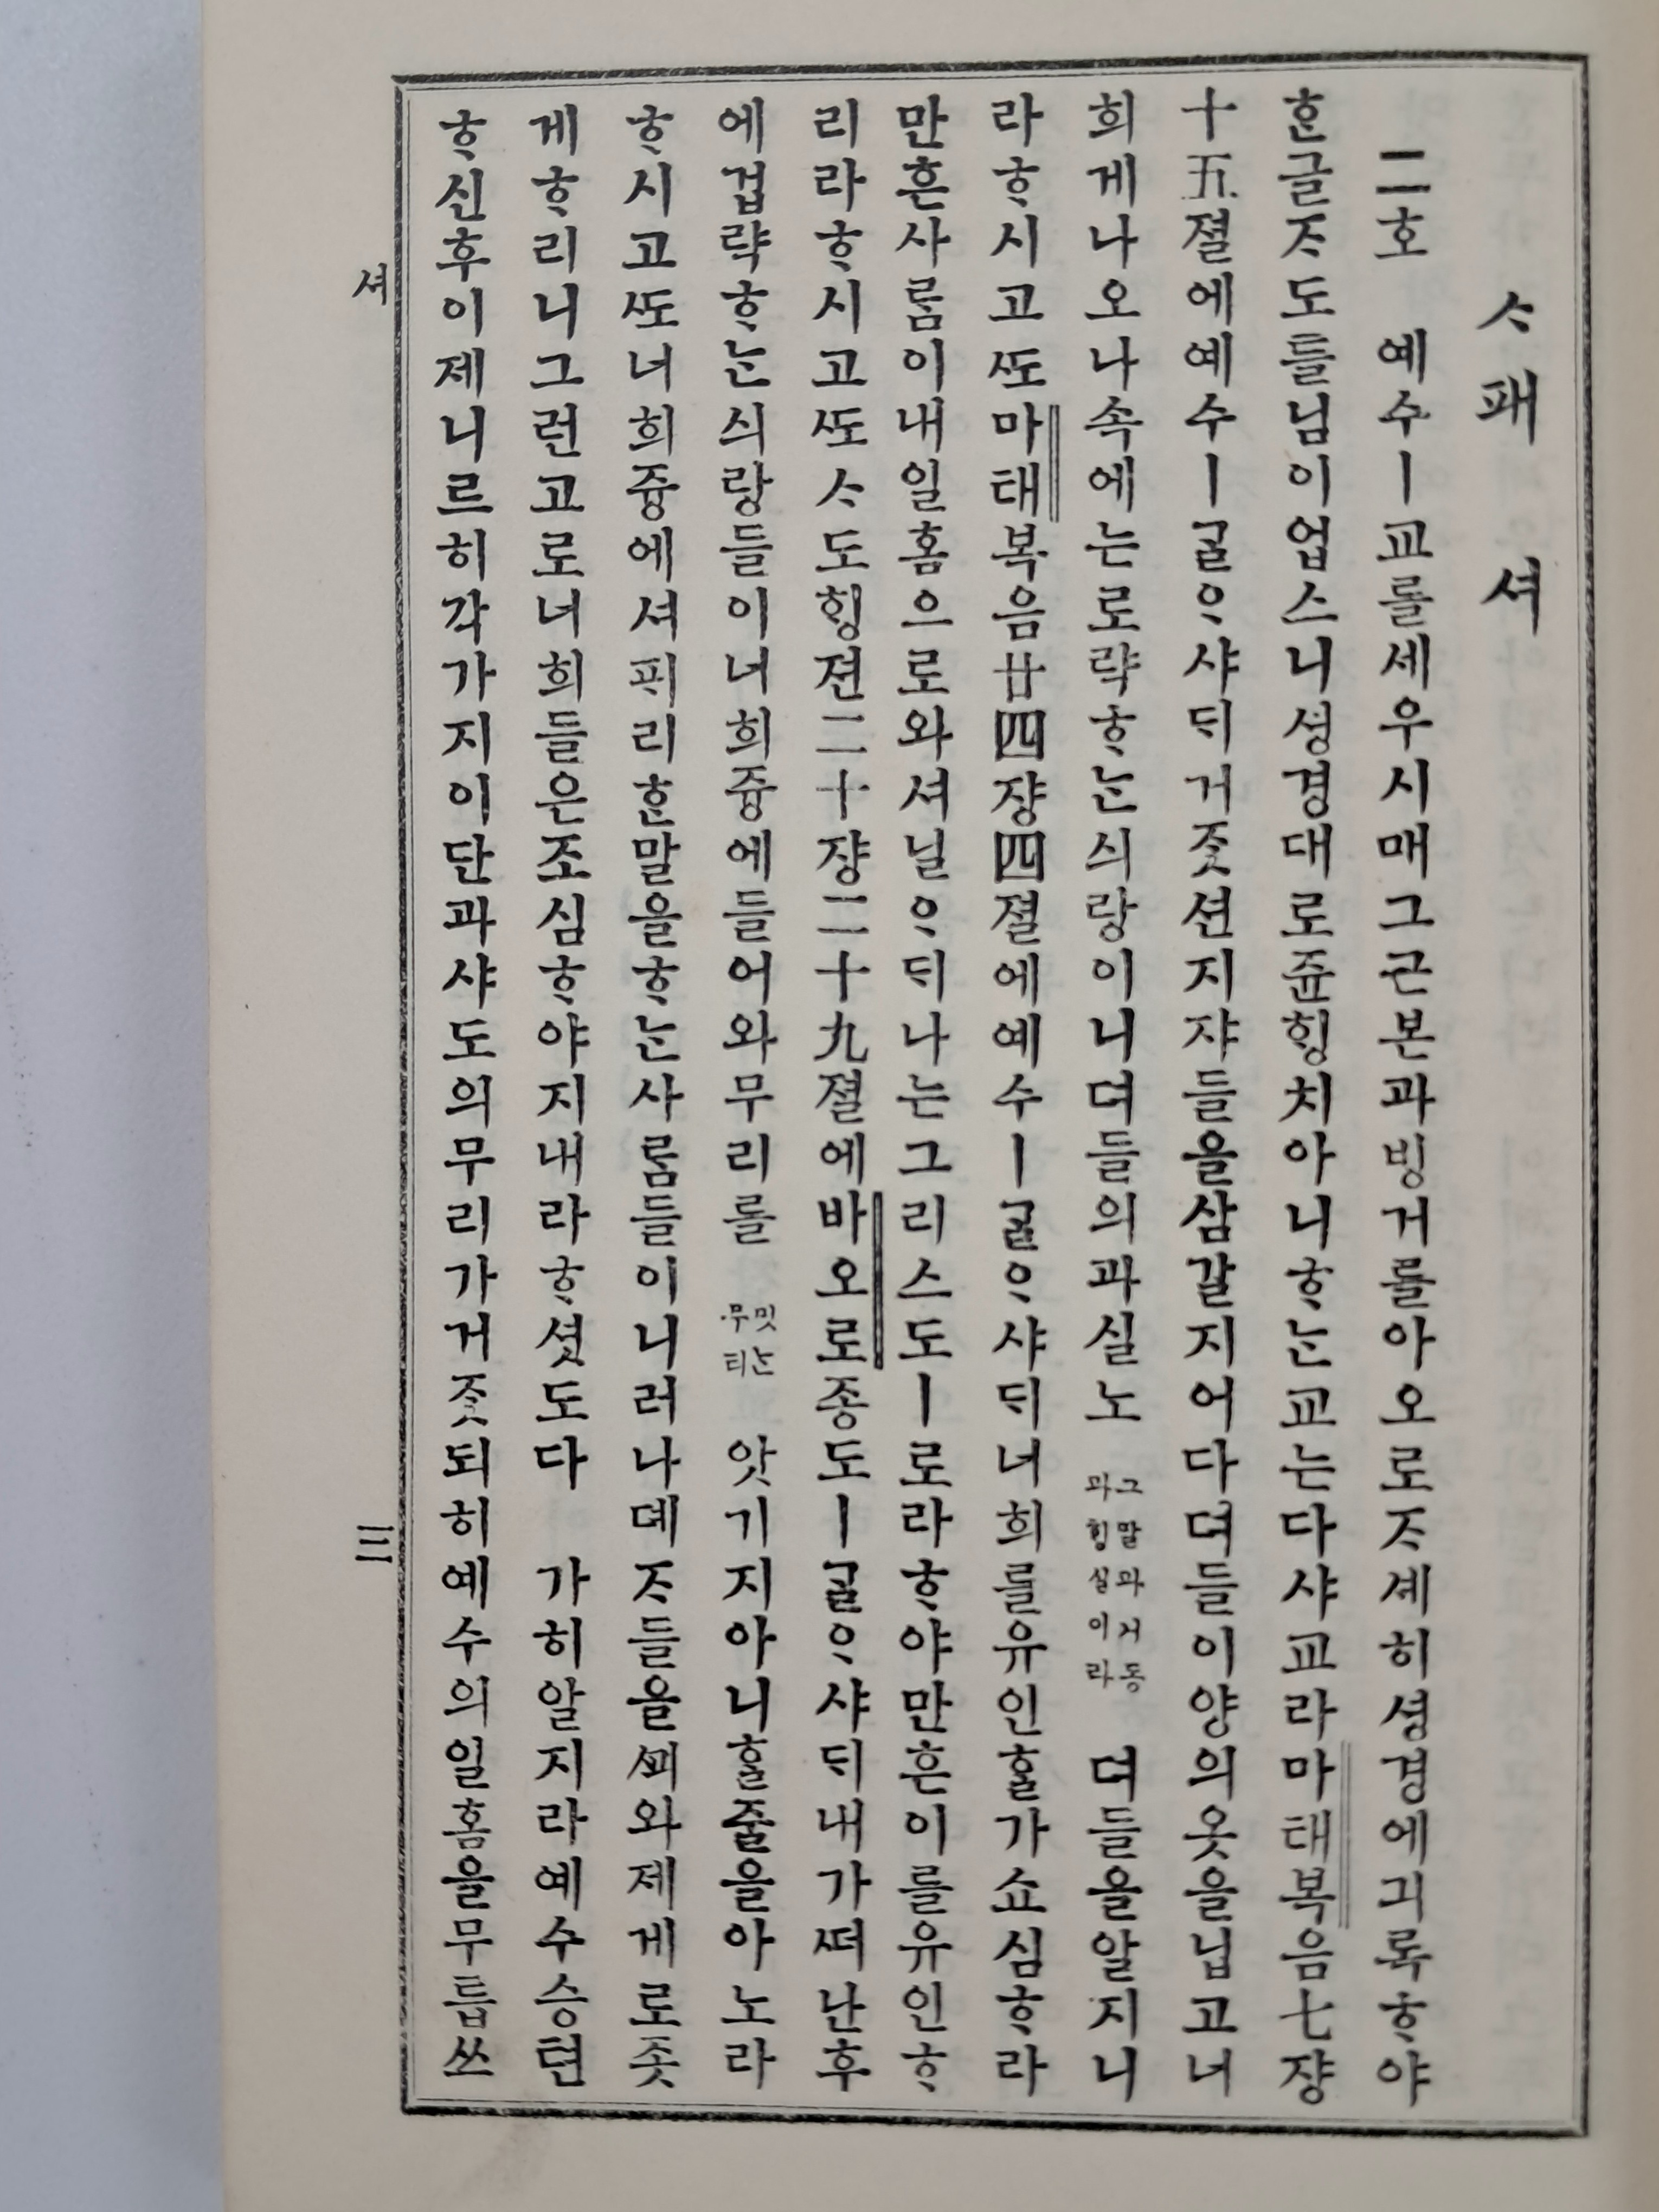 ᄉᆞ패 셔
二호 예수ㅣ교를세우시매그근본과빙거를아오로ᄌᆞ셰히셩경에긔록ᄒᆞ야
ᄒᆞᆫ글ᄌᆞ도틀님이업스니셩경대로쥰ᄒᆡᆼ치아니ᄒᆞᄂᆞᆫ교는다샤교라마태복음七쟝
十五졀에예수ㅣᄀᆞᆯᄋᆞ샤ᄃᆡ거즛션지쟈들을삼갈지어다뎌들이양의옷을닙고너
희게나오나속에는로략ᄒᆞᄂᆞᆫ싀랑이니뎌들의과실노 그말과거동과ᄒᆡᆼ실이라 뎌들을알지니
라ᄒᆞ시고ᄯᅩ마태복음廿四쟝四졀에예수ㅣᄀᆞᆯᄋᆞ샤ᄃᆡ너희를유인ᄒᆞᆯ가쇼심ᄒᆞ라
만흔사ᄅᆞᆷ이내일홈으로와셔닐ᄋᆞᄃᆡ나는그리스도ㅣ로라ᄒᆞ야만흔이를유인ᄒᆞ
리라ᄒᆞ시고ᄯᅩᄉᆞ도ᄒᆡᆼ젼二十쟝二十九졀에바오로종도ㅣᄀᆞᆯᄋᆞ샤ᄃᆡ내가ᄯᅥ난후
에겁략ᄒᆞᄂᆞᆫ싀랑들이너희즁에들어와무리를 밋ᄂᆞᆫ무리 앗기지아니ᄒᆞᆯ줄을아노라
ᄒᆞ시고ᄯᅩ너희즁에셔ᄑᆡ리ᄒᆞᆫ말을ᄒᆞᄂᆞᆫ사ᄅᆞᆷ들이니러나뎨ᄌᆞ들을ᄭᅬ와제게로좃
게ᄒᆞ리니그런고로너희들은조심ᄒᆞ야지내라ᄒᆞ셧도다 가히알지라예수승텬
ᄒᆞ신후이제니르히각가지이단과샤도의무리가거즛되히예수의일홈을무릅쓰
셔
三